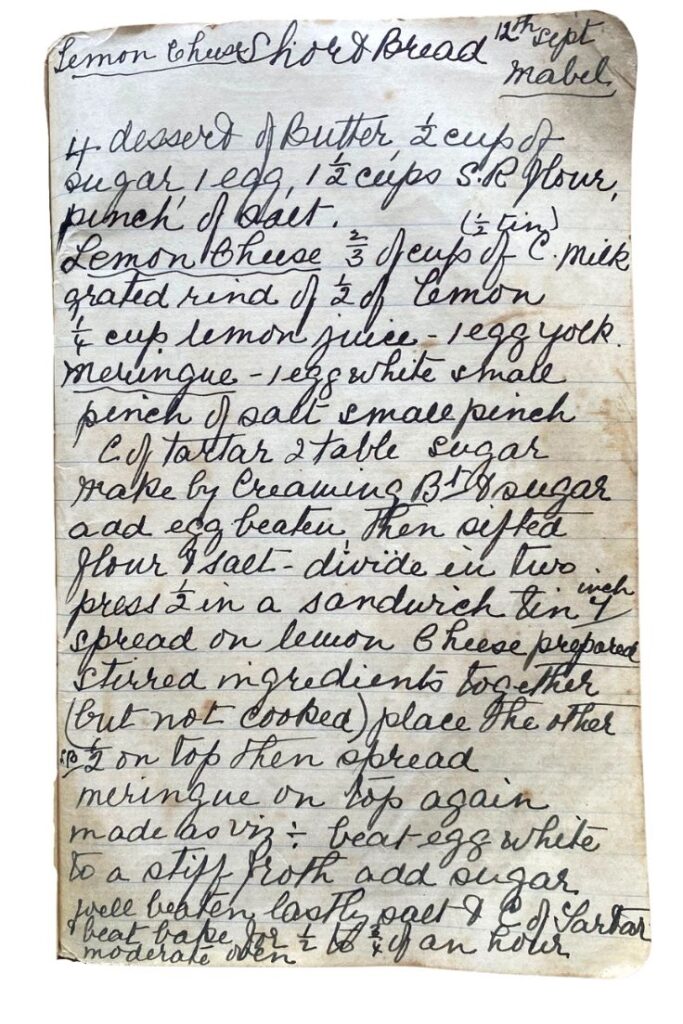 Lemon Cheese Short Bread 12th Sept
Mabel
4 dessert of Butter, ½ cup of
sugar, 1 egg, 1 ½ cups S.R flour,
pinch of salt.
(½ tin)
Lemon Cheese ⅔ of cup of C. Milk
grated rind of ½ of lemon
¼ cup lemon juice - 1 egg yolk.
Meringue - 1 egg white small
pinch of salt small pinch
C of tartar 2 table sugar
make by Creaming Bt & sugar
add egg beaten, then sifted
flour & salt - divide in two
press ½ in a sandwich tin 7 inch
spread on lemon Cheese prepared
stirred ingredients together
(but not cooked) place the other
½ on top then spread
meringue on top again
made as viz ÷ beat egg white
to a stiff froth add sugar
well beaten, lastly salt & C of Tartar
& beat bake for ½ to ¾ of an hour
moderate oven